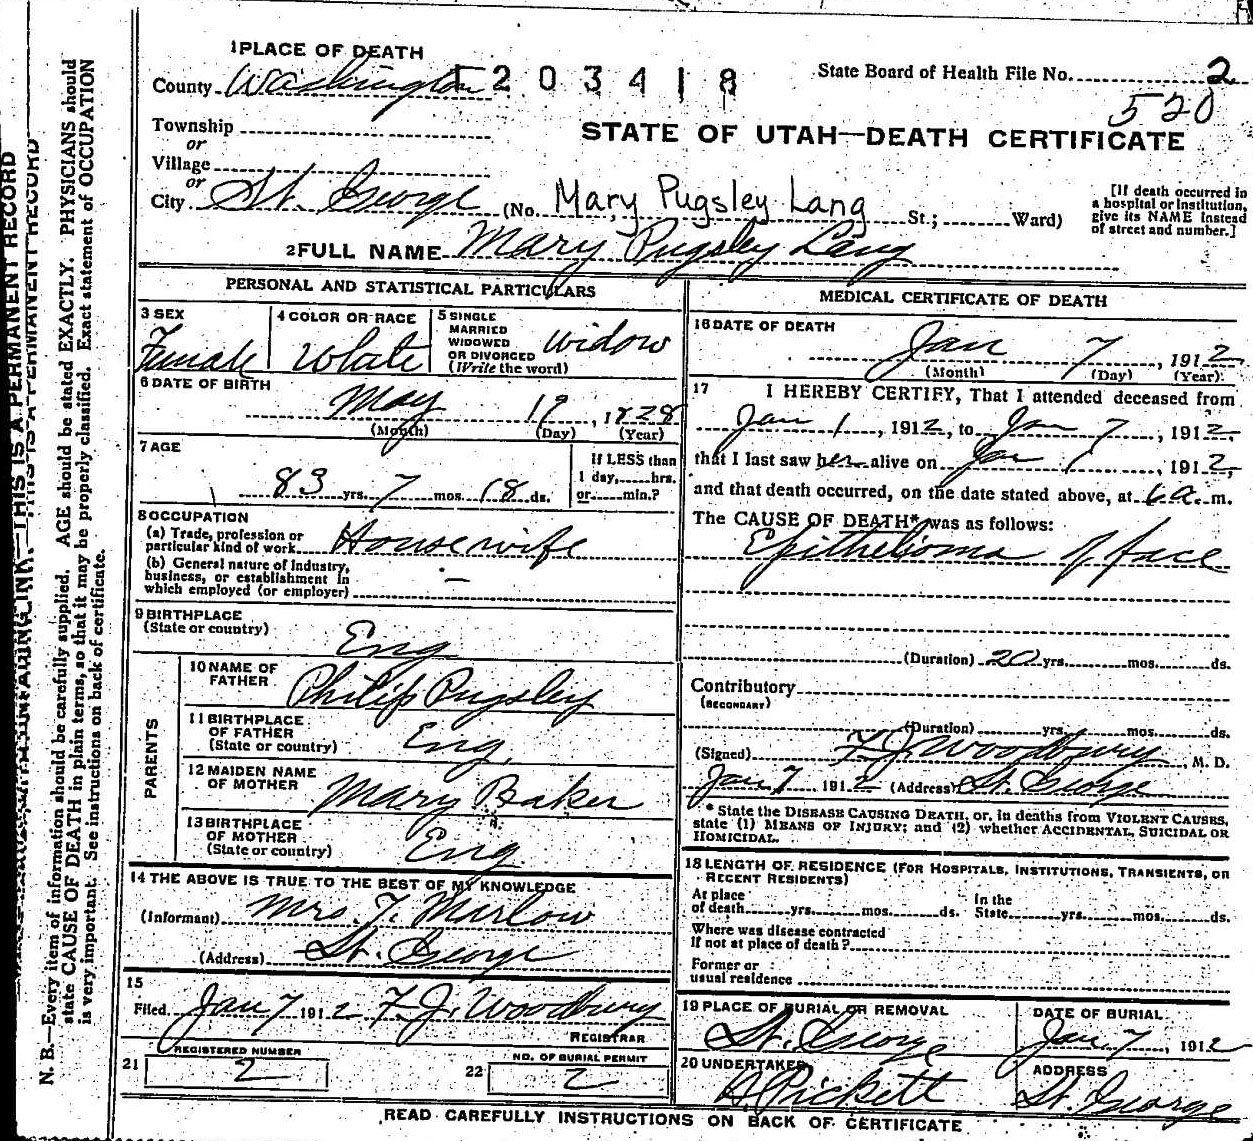 1 PLACE OF DEATH
County Washington 1203418 State Board of Health File No. 2
520
Township
or
STATE OF UTAH—DEATH CERTIFICATE
Village
or
City St. George (No. Mary Pugsley Lang St.; Ward)
[If death occurred in
a hospital or institution,
give its NAME instead
of street and number.]
2 FULL NAME Mary Pugsley Lang
PERSONAL AND STATISTICAL PARTICULARS
3 SEX
Female
4 COLOR OR RACE
White
5 SINGLE
MARRIED
WIDOWED
OR DIVORCED
(Write the word)
widow
6 DATE OF BIRTH
May 19, 1828
(Month) (Day) (Year)
7 AGE
83 yrs. 7 mos. 18 ds.
If LESS than
1 day, hrs.
or min.?
8 OCCUPATION
(a) Trade, profession or
particular kind of work Housewife
(b) General nature of Industry,
business, or establishment in
which employed (or employer) —
9 BIRTHPLACE
(State or country)
Eng
PARENTS
10 NAME OF
FATHER Philip Pugsley
11 BIRTHPLACE
OF FATHER
(State or country) Eng
12 MAIDEN NAME
OF MOTHER Mary Baker
13 BIRTHPLACE
OF MOTHER
(State or country) Eng
14 THE ABOVE IS TRUE TO THE BEST OF MY KNOWLEDGE
(Informant) Mrs. T. Marlow
(Address) St. George
15
Filed Jan 7 1912 F. J. Woodbury
REGISTRAR
21 REGISTERED NUMBER
2
22 NO. OF BURIAL PERMIT
2
MEDICAL CERTIFICATE OF DEATH
16 DATE OF DEATH
Jan 7, 1912
(Month) (Day) (Year)
17 I HEREBY CERTIFY, That I attended deceased from
Jan 1, 1912, to Jan 7, 1912,
that I last saw her alive on Jan 7, 1912,
and that death occurred, on the date stated above, at 6 a. m.
The CAUSE OF DEATH* was as follows:
Epithelioma of face
(Duration) 20 yrs. mos. ds.
Contributory
(SECONDARY)
(Duration) yrs. mos. ds.
(Signed) F. J. Woodbury, M. D.
Jan 7 1912 (Address) St. George
* State the DISEASE CAUSING DEATH, or, in deaths from VIOLENT CAUSES,
state (1) MEANS OF INJURY; and (2) whether ACCIDENTAL, SUICIDAL OR
HOMICIDAL.
18 LENGTH OF RESIDENCE (FOR HOSPITALS, INSTITUTIONS, TRANSIENTS, OR
RECENT RESIDENTS)
At place
of death yrs. mos. ds.
In the
State yrs. mos. ds.
Where was disease contracted
if not at place of death?
Former or
usual residence
19 PLACE OF BURIAL OR REMOVAL
St. George
DATE OF BURIAL
Jan 7, 1912
20 UNDERTAKER
A Pickett
ADDRESS
St. George
READ CAREFULLY INSTRUCTIONS ON BACK OF CERTIFICATE
THIS IS A PERMANENT RECORD
N. B.—Every item of information should be carefully supplied. AGE should be stated EXACTLY. PHYSICIANS should
state CAUSE OF DEATH in plain terms, so that it may be properly classified. Exact statement of OCCUPATION
is very important. See instructions on back of certificate.